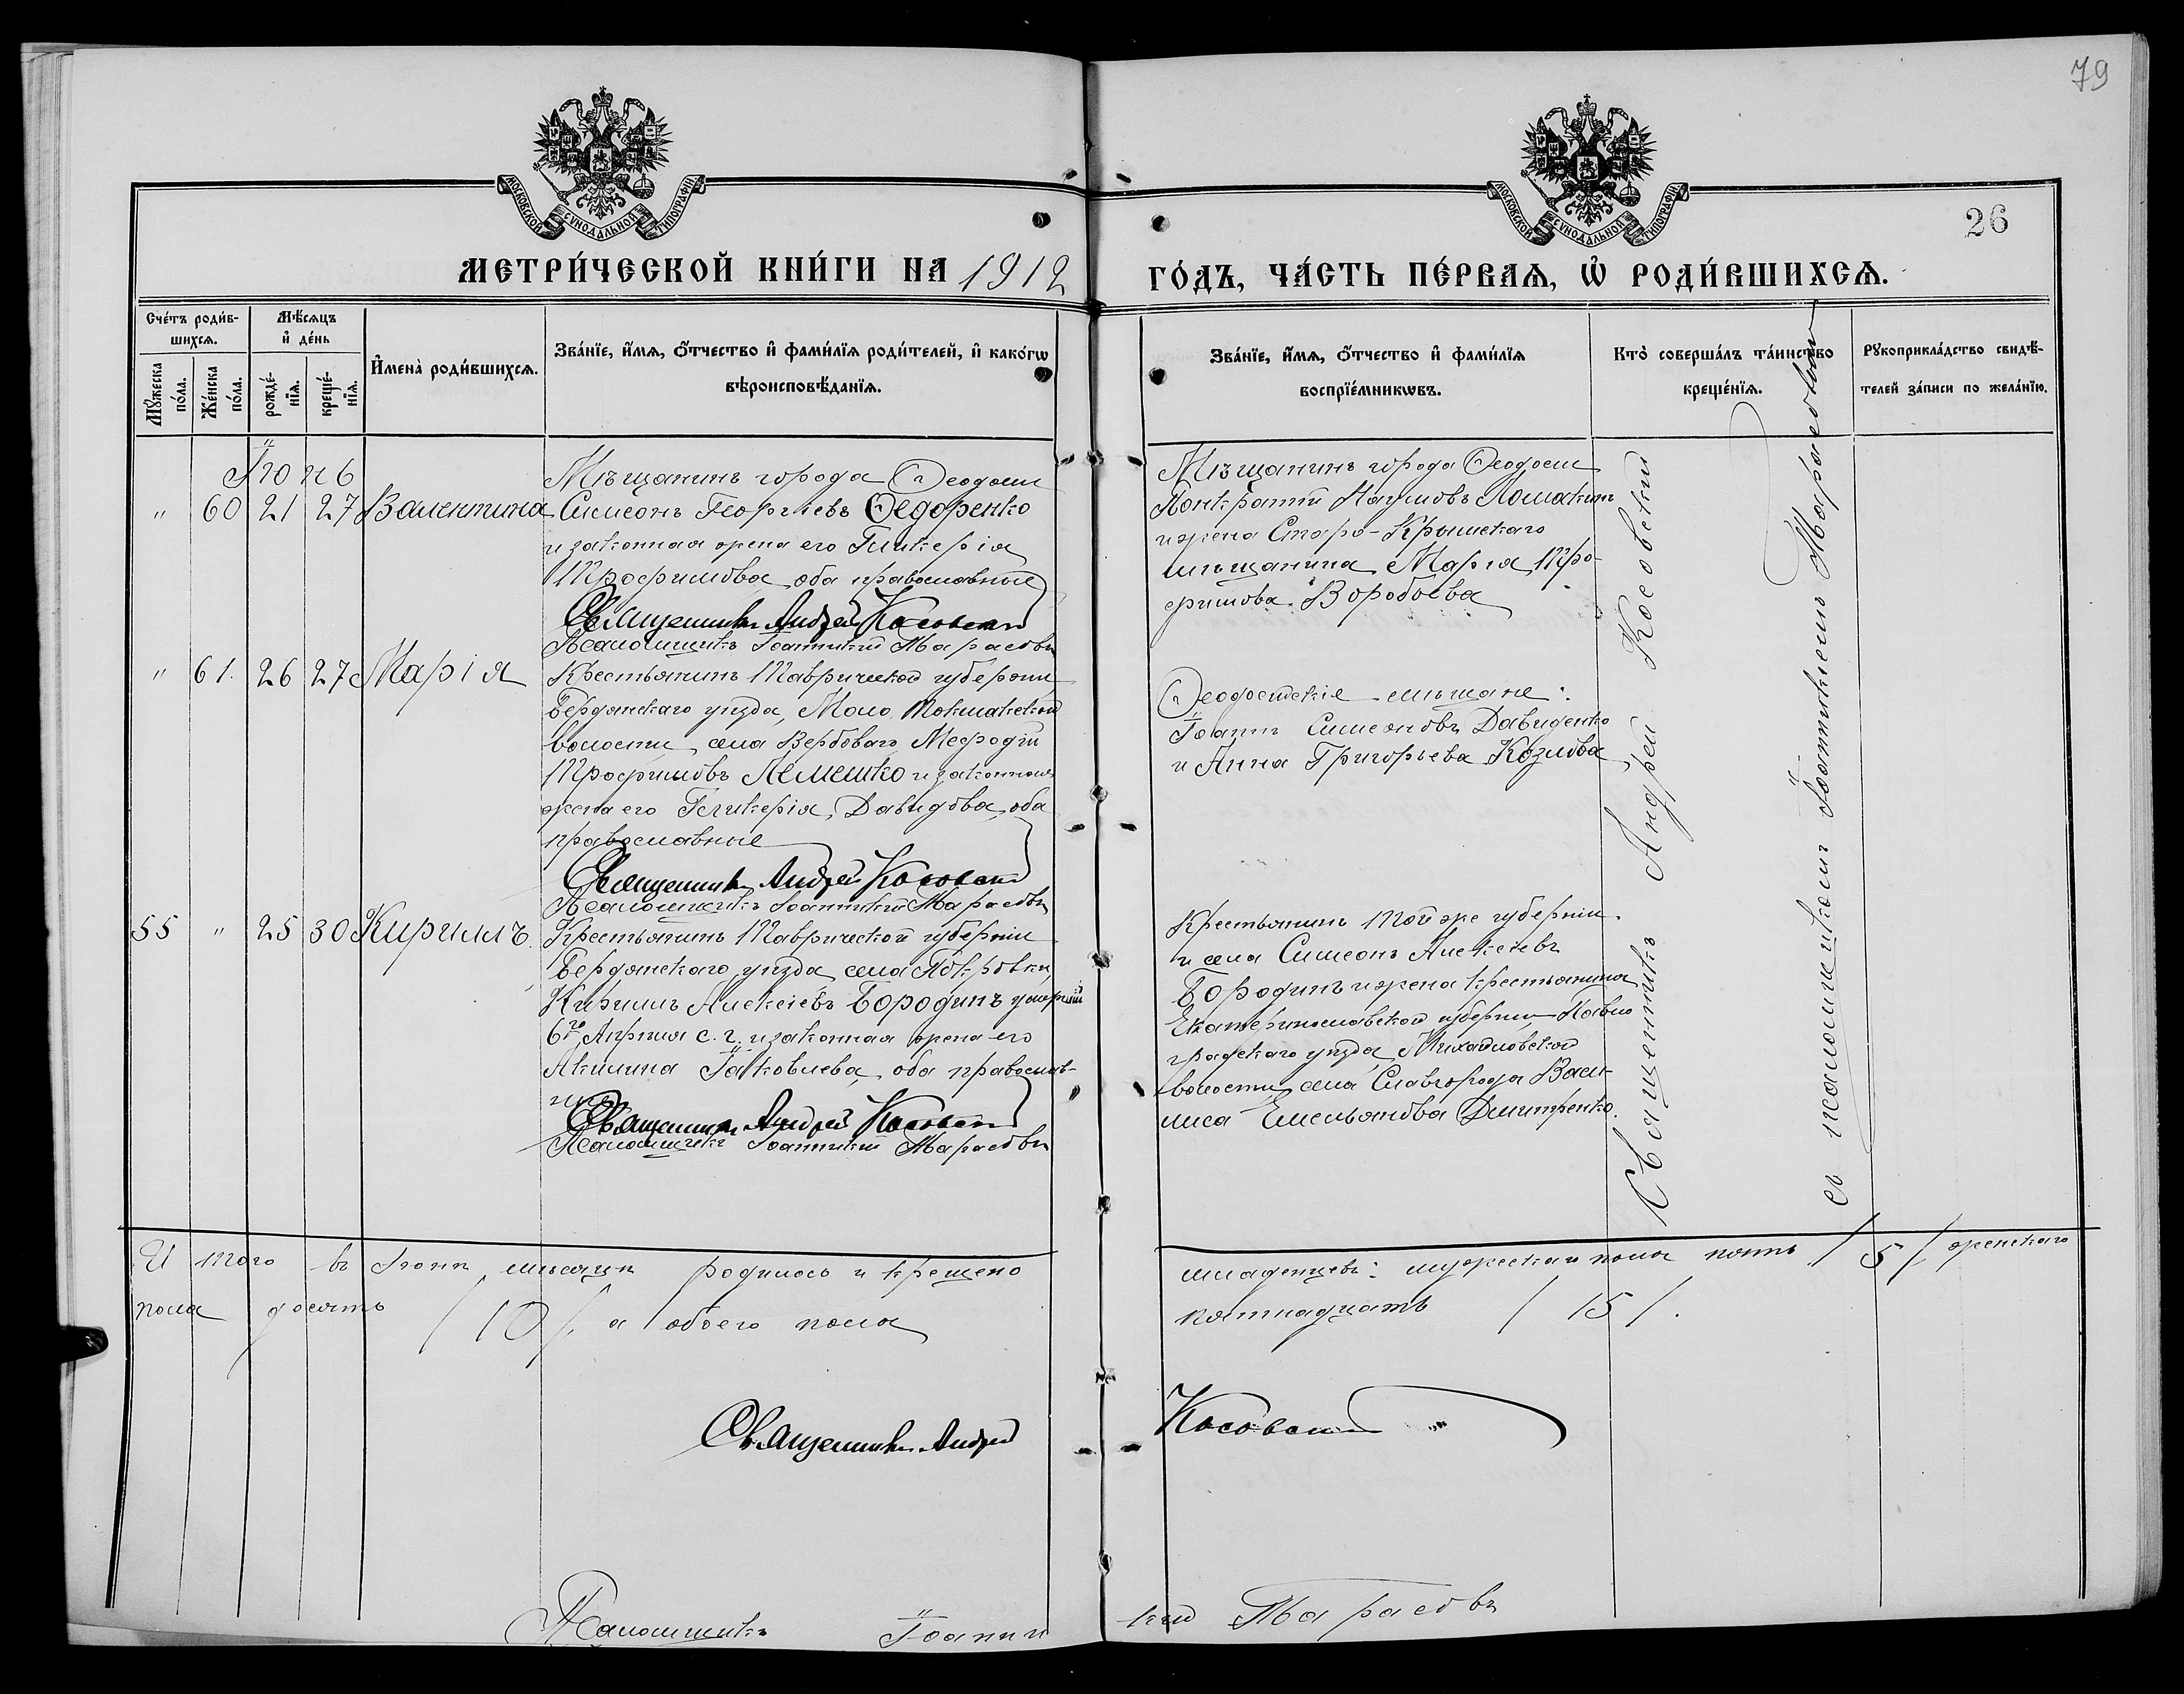 79
МОСКОВСКОЙ СѴНОДАЛЬНОЙ ТИПОГРАФІИ
МОСКОВСКОЙ СѴНОДАЛЬНОЙ ТИПОГРАФІИ
26
МЕТРИ́ЧЕСКОЙ КНИ́ГИ НА 1912
ГО́ДЪ, ЧА́СТЬ ПЕ́РВАѦ, Ѡ҆ РОДИ́ВШИХСѦ.
Сче́тъ роди́в-
шихсѧ.
Мꙋ́жеска
по́ла.
Же́нска
по́ла.
Мѣ́сѧцъ
и҆ де́нь
рожде́-
нїѧ.
креще́-
нїѧ.
И҆мена̀ роди́вшихсѧ.
Зва́нїе, и҆́мѧ, ѻ҆́тчество и҆ фами́лїѧ роди́телей, и҆ како́гѡ
вѣроисповѣ́данїѧ.
Зва́нїе, и҆́мѧ, ѻ҆́тчество и҆ фами́лїѧ
воспрїе́мникѡвъ.
Кто̀ соверша́лъ та́инство
креще́нїѧ.
Рꙋкоприкла́дство свидѣ́-
телей за́писи по жела́нїю.
Іюнь
" 60 21 27 Валентина
Мѣщанинъ города Ѳеодосіи
Симеонъ Георгіевъ Ѳедоренко
и законная жена его Гликерія
Трофимова, оба православные
Священникъ Андрей Косовскій
Псаломщикъ Іоанникій Тарасовъ
Мѣщанинъ города Ѳеодосіи
Понкратій Наумовъ Ломакинъ
и жена Старо-Крымскаго
мѣщанина Марія Тро-
фимова Воробьева
" 61. 26 27 Марія
Крестьянинъ Таврической губерніи
Бердянскаго уѣзда, Мало Токмакской
волости, села Вербоваго Мефодій
Трофимовъ Лемешко и законная
жена его Гликерія Давидова, оба
православные
Священникъ Андрей Косовскій
Псаломщикъ Іоанникій Тарасовъ
Ѳеодосійскіе мѣщане:
Іоаннъ Симеоновъ Давиденко
и Анна Григорьева Козлова
55 " 25 30 Кириллъ.
Крестьянинъ Таврической губерніи
Бердянскаго уѣзда села Покровки,
Кириллъ Алексіевъ Бородинъ умершій
6го Апрѣля с. г. и законная жена его
Акилина Іаковлева, оба православ-
ные
Священникъ Андрей Косовскій
Псаломщикъ Іоанникій Тарасовъ
Крестьянинъ той же губерніи
и села Симеонъ Алексіевъ
Бородинъ и жена крестьянина
Екатеринославской губерніи Павло
градскаго уѣзда, Михайловской
волости, села Славгорода Васи-
лиса Емельянова Дмитренко.
Священникъ Андрей Косовскій
съ псаломщикомъ Іоанникіемъ Тарасовымъ
И того въ Іюнѣ мѣсяцѣ родилось и крещено
младенцевъ: мужескаго пола пять / 5 /, женскаго
пола десять / 10 /, а обоего пола
пятнадцать / 15 /.
Священникъ Андрей Косовскій
Псаломщикъ Іоанникій Тарасовъ